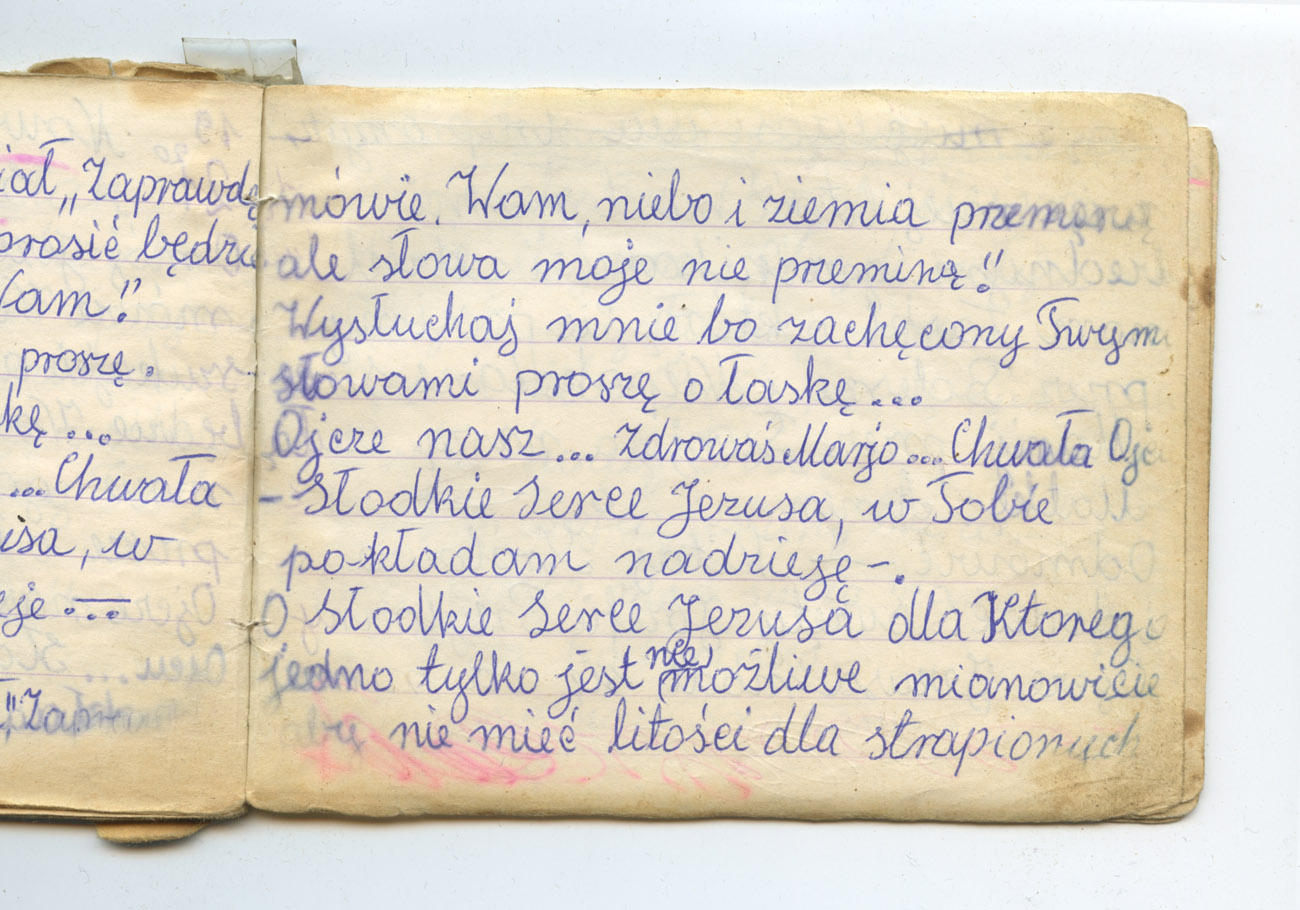 "Zaprawdę
prosić będzie
Wam!"
proszę.
...
... Chwała
w
"Zapra
mówię. Wam, niebo i ziemia przeminą
ale słowa moje nie przeminą!"
Wysłuchaj mnie bo zachęcony Twymi
słowami proszę o łaskę...
Ojcze nasz... Zdrowaś Marjo... Chwała Ojcu
- Słodkie Serce Jezusa, w Tobie
po-kładam nadzieję -.
O Słodkie Serce Jezusa dla Którego
jedno tylko jest nie możliwe mianowicie
by nie mieć litości dla strapionych